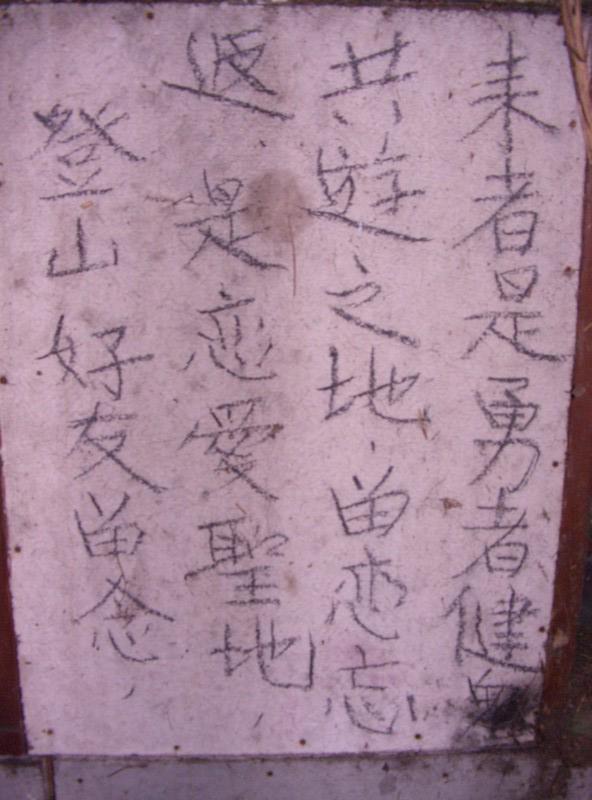 来者是勇者健
共遊之地、畄恋忘
返是恋愛聖地,
登山好友畄念,